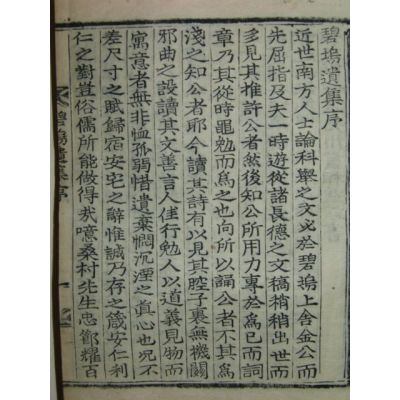 碧塢遺集序
近世南方人士論科舉之文必於碧塢上舍金公而
先屈指及夫一時遊從諸長德之文稿稍稍出世而
多見其推許公者然後知公所用力專於爲已而詞
章乃其從時黽勉而爲之也向所以謟公者不其爲
淺之知公者耶今讀其詩有以見其腔子裏無機關
邪曲之設讀其文善言人佳行勉人以道義見物而
寓意者無非恤孤弱惜遺棄憫沉湮之眞心也况不
差尺寸之賦歸宿安宅之辭惟誠乃存之箴安仁利
仁之對豈俗儒所能做得哉噫桑村先生忠節耀百
碧塢遺集序
一